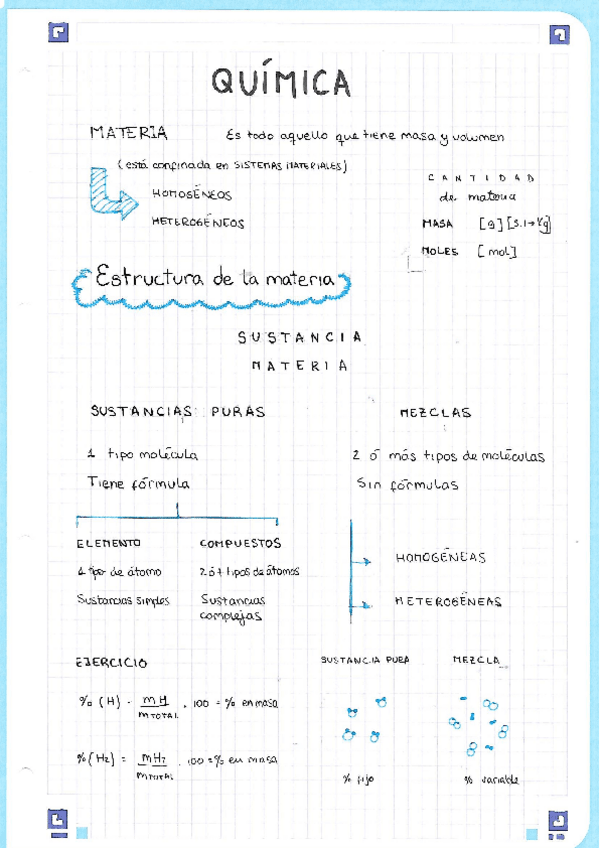 QUÍMICA
MATERIA Es todo aquello que tiene masa y volumen
(está confinada en SISTEMAS MATERIALES)
HOMOGÉNEOS
HETEROGÉNEOS
CANTIDAD
de materia
MASA [g] [S.I→Kg]
MOLES [mol]
Estructura de la materia
SUSTANCIA
MATERIA
SUSTANCIAS PURAS
1 tipo molécula
Tiene fórmula
ELEMENTO
1 tipo de átomo
Sustancias simples
COMPUESTOS
2 ó + tipos de átomos
Sustancias
complejas
MEZCLAS
2 ó más tipos de moléculas
Sin fórmulas
HOMOGÉNEAS
HETEROGÉNEAS
EJERCICIO
% (H) = mH / mTOTAL . 100 = % en masa
% (H2) = mH2 / mTOTAL . 100 = % en masa
SUSTANCIA PURA
% fijo
MEZCLA
% variable